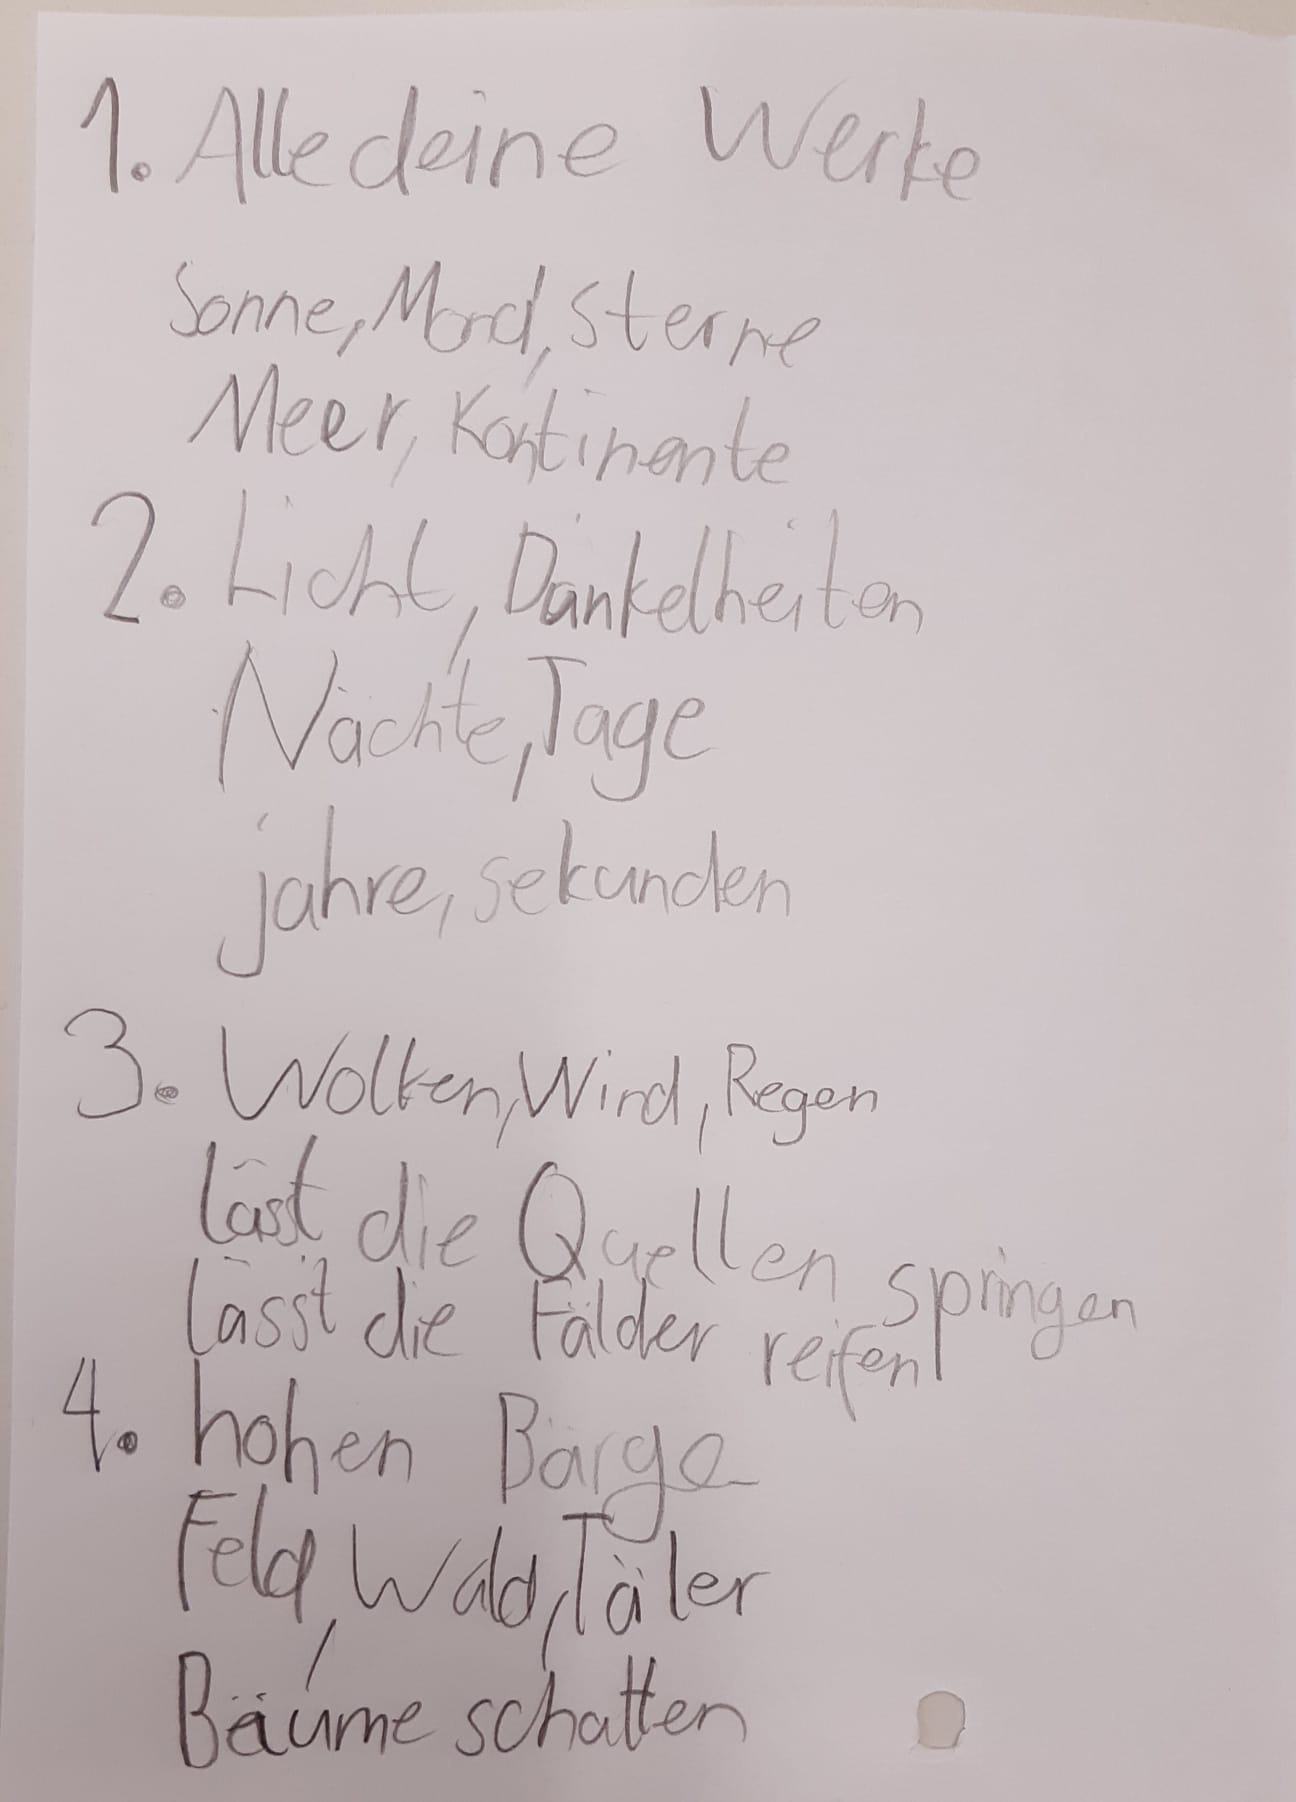 1. Alle deine Werke
Sonne, Mond, Sterne
Meer, Kontinente
2. Licht, Dunkelheiten
Nächte, Tage
jahre, sekunden
3. Wolken, Wind, Regen
läst die Quellen springen
lässt die Fälder reifen
4. hohen Bärge
Feld, Wald, Täler
Bäume schatten